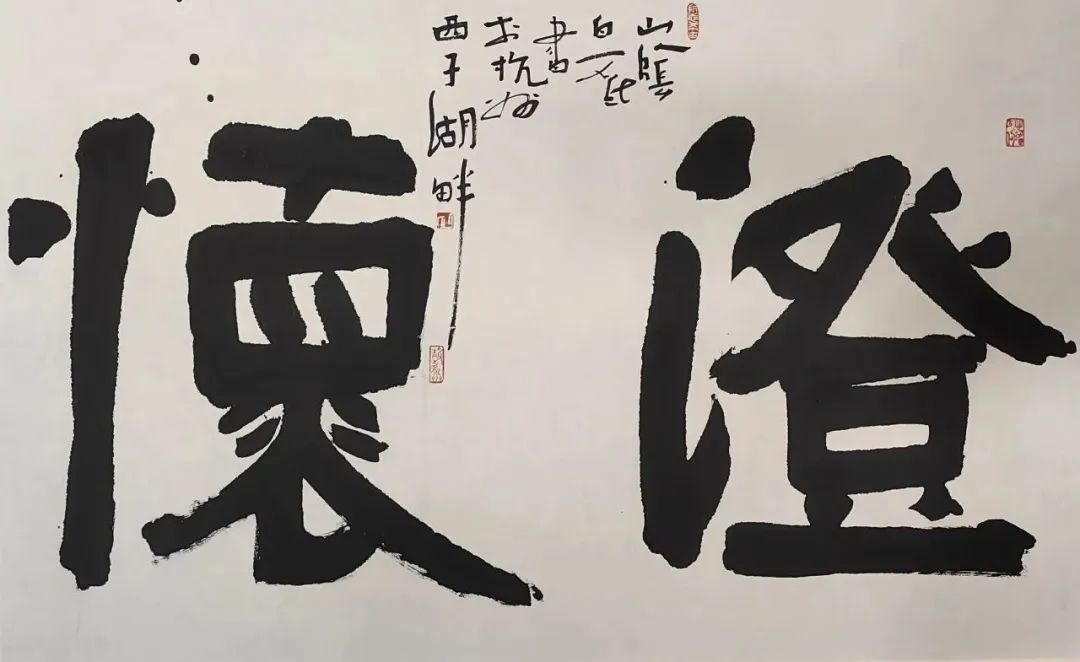 澄懷
山陰
白
書
於杭州
西子湖畔